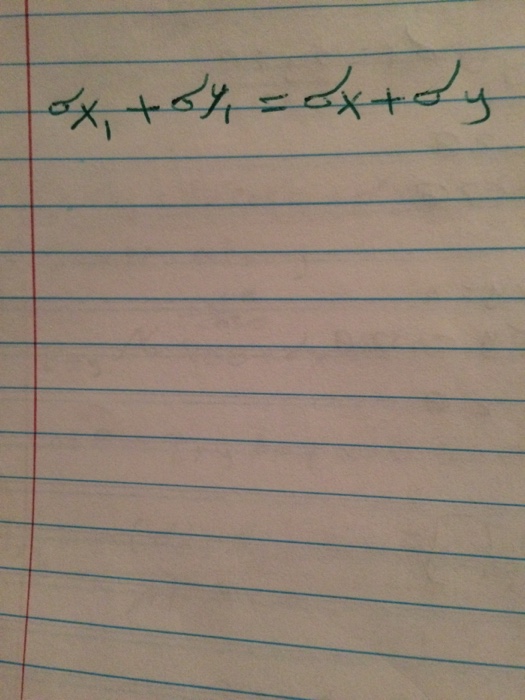 σx₁ + σy₁ = σx + σy